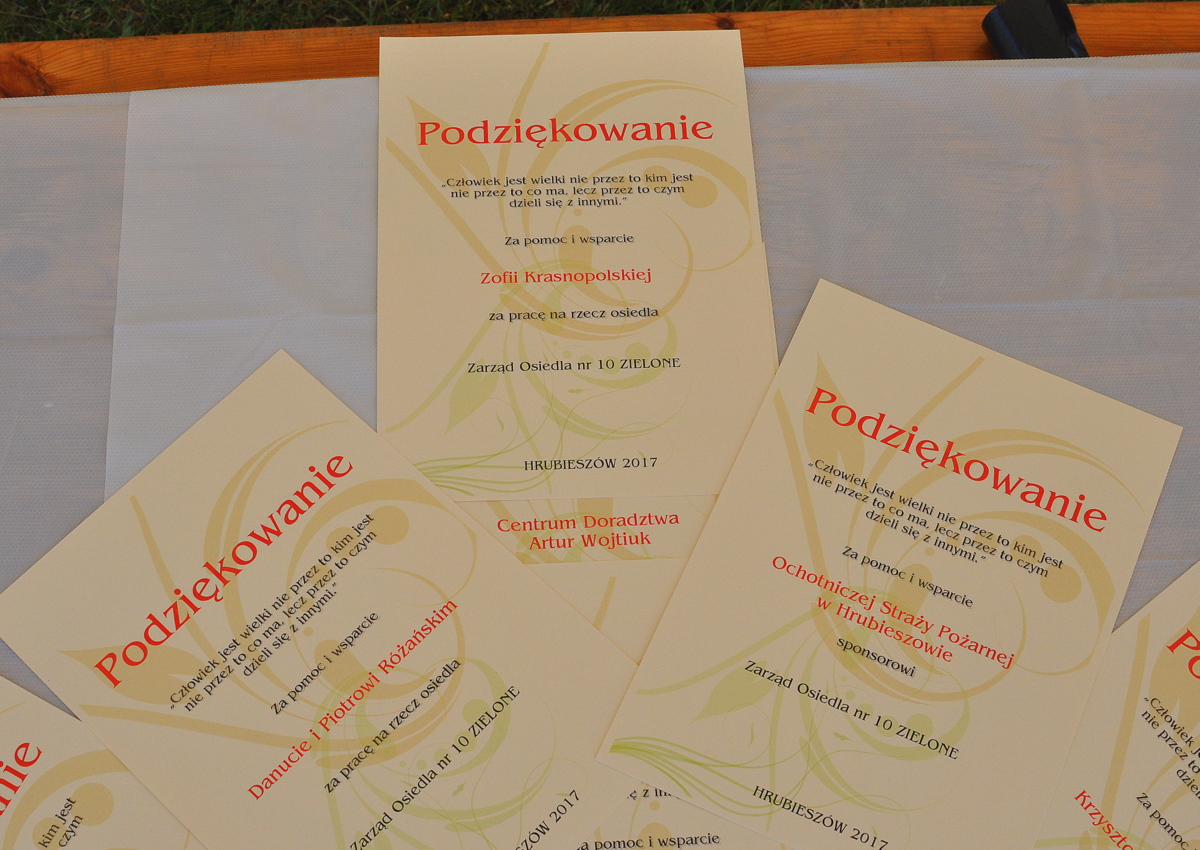 Podziękowanie
„Człowiek jest wielki nie przez to kim jest
nie przez to co ma, lecz przez to czym
dzieli się z innymi.”
Za pomoc i wsparcie
Zofii Krasnopolskiej
za pracę na rzecz osiedla
Zarząd Osiedla nr 10 ZIELONE
HRUBIESZÓW 2017
Centrum Doradztwa
Artur Wojtiuk
Podziękowanie
„Człowiek jest wielki nie przez to kim jest
nie przez to co ma, lecz przez to czym
dzieli się z innymi.”
Za pomoc i wsparcie
Danucie i Piotrowi Różańskim
za pracę na rzecz osiedla
Zarząd Osiedla nr 10 ZIELONE
Podziękowanie
„Człowiek jest wielki nie przez to kim jest
nie przez to co ma, lecz przez to czym
dzieli się z innymi.”
Za pomoc i wsparcie
Ochotniczej Straży Pożarnej
w Hrubieszowie
sponsorowi
Zarząd Osiedla nr 10 ZIELONE
HRUBIESZÓW 2017
kim jest
czym
pomoc i wsparcie
„Człowiek jest
nie przez to
Za pomoc